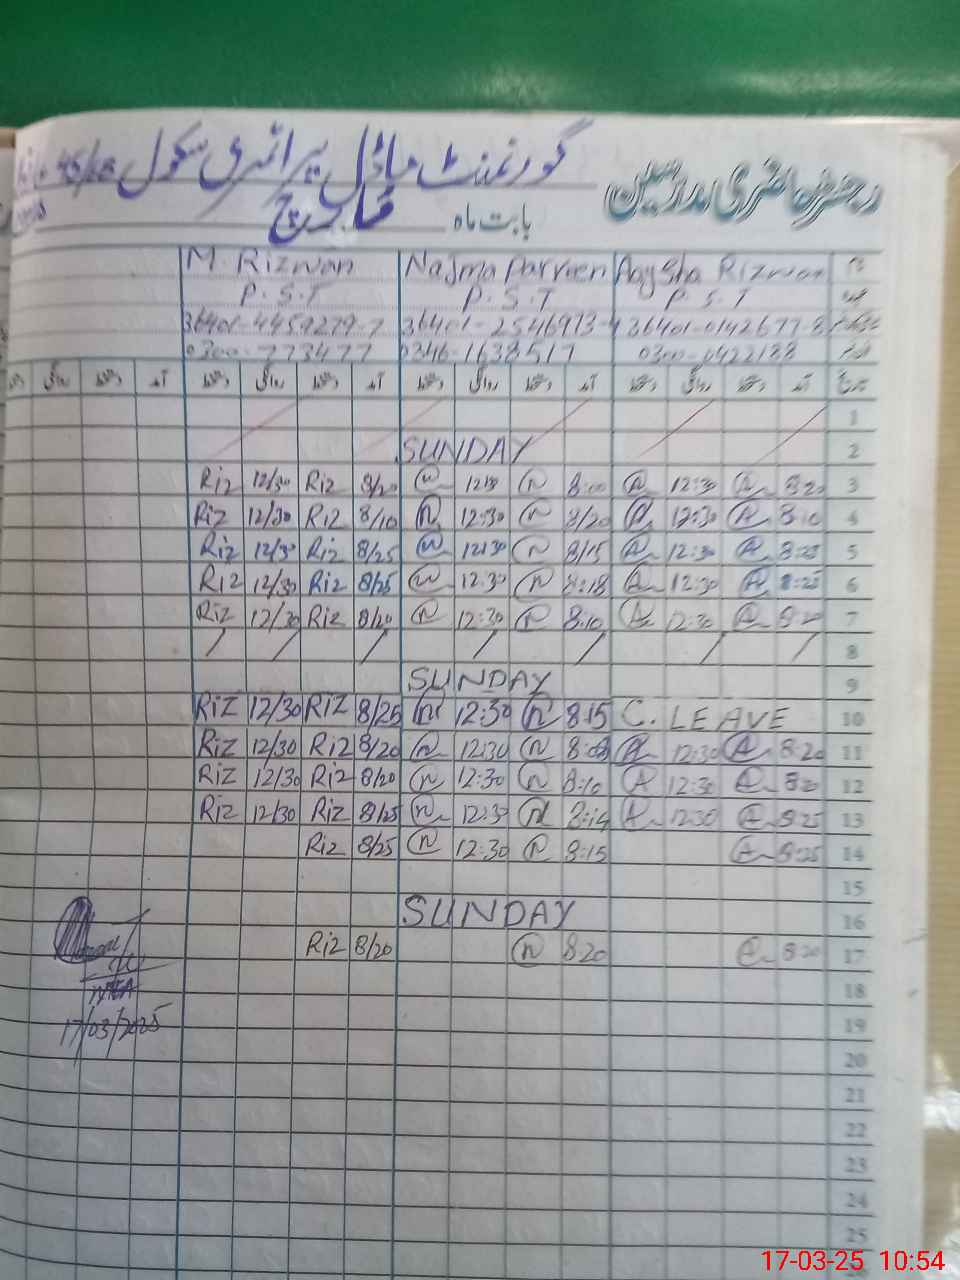 گورنمنٹ ماڈل پرائمری سکول
رجسٹر حاضری مدرسین
بابت ماہ مارچ
M. Rizwan Najma Parveen Aaysha Rizwan
P.S.T P.S.T P.S.T
36401-4459279-7 36401-2546973-4 36401-0142677-8
0300-773477 0346-1638517 0300-0422188
روانگی دستخط آمد دستخط روانگی دستخط آمد دستخط روانگی دستخط آمد تاریخ
1
SUNDAY 2
Riz 12/30 Riz 8/20 n 1230 n 8:00 A 12:30 A 8:20 3
Riz 12/30 Riz 8/10 n 12:30 n 8/20 A 12:30 A 8:10 4
Riz 12/30 Riz 8/25 n 12:30 n 8/15 A 12:30 A 8:25 5
Riz 12/30 Riz 8/25 n 12:30 n 8:18 A 12:30 A 8:25 6
Riz 12/30 Riz 8/20 n 12:30 n 8:10 A 12:30 A 8:20 7
/ / / / / / / 8
SUNDAY 9
RiZ 12/30 RiZ 8/25 n 12:30 n 8:15 C. LEAVE 10
Riz 12/30 Riz 8/20 n 12:30 n A 12:30 A 8:20 11
Riz 12/30 Riz 8/20 n 12:30 n 8:10 A 12:30 A 8:20 12
Riz 12/30 Riz 8/25 n 12:30 n 8:14 A 12:30 A 8:25 13
Riz 8/25 n 12:30 n 8:15 A 8:25 14
15
SUNDAY 16
Riz 8/20 n 8:20 A 8:20 17
18
17/03/2025 19
20
21
22
23
24
25
17-03-25 10:54